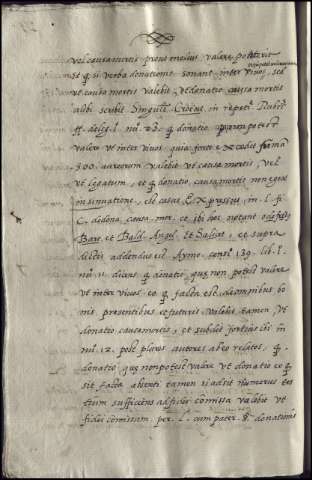 vel causa mortis prout melius valere poterit
et q si verba donationis sonant inter vivos, sed
ut causa mortis valebit, ut donatio causa mortis
alibi scribit Singul. Crotus in repet. Rubr.
ff. de leg. 1. nu. 23. q donatio non potest
valere ut inter vivos quia forte excedit
500. aureorum valebit ut causa mortis, vel
ut legatum, eo q donatio causa mortis non eget
insinuatione, est casus expressus in l. fi.
C. de dona. causa mor. et ibi hoc notant
Bar. et Bald. Angel. et Salicet, et supra
dictis addendus est Aymo. consi. 139. lib. 1.
nu. 11. dicens q donatio que non potest valere
ut inter vivos eo q facta est de omnibus bo
nis presentibus et futuris valebit tamen ut
donatio causa mortis, et subdit in
nu. 12. post plures autores ab eo relatos, q
donatio que non potest valere ut donatio eo q
sit facta absenti tamen si adsit numerus tes
tium sufficiens ad fidei comissa valebit ut
fidei comissum per l. cum pater § donationis